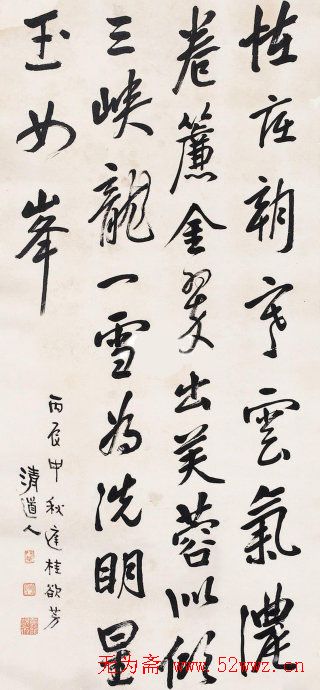 怪底朝寒雲氣濃
卷簾金翠出芙蓉似傾
三峽龍一雪為洗明星
玉女峯
丙辰中秋庭桂欲芳
清道人
无为斋 www.52wwz.cn